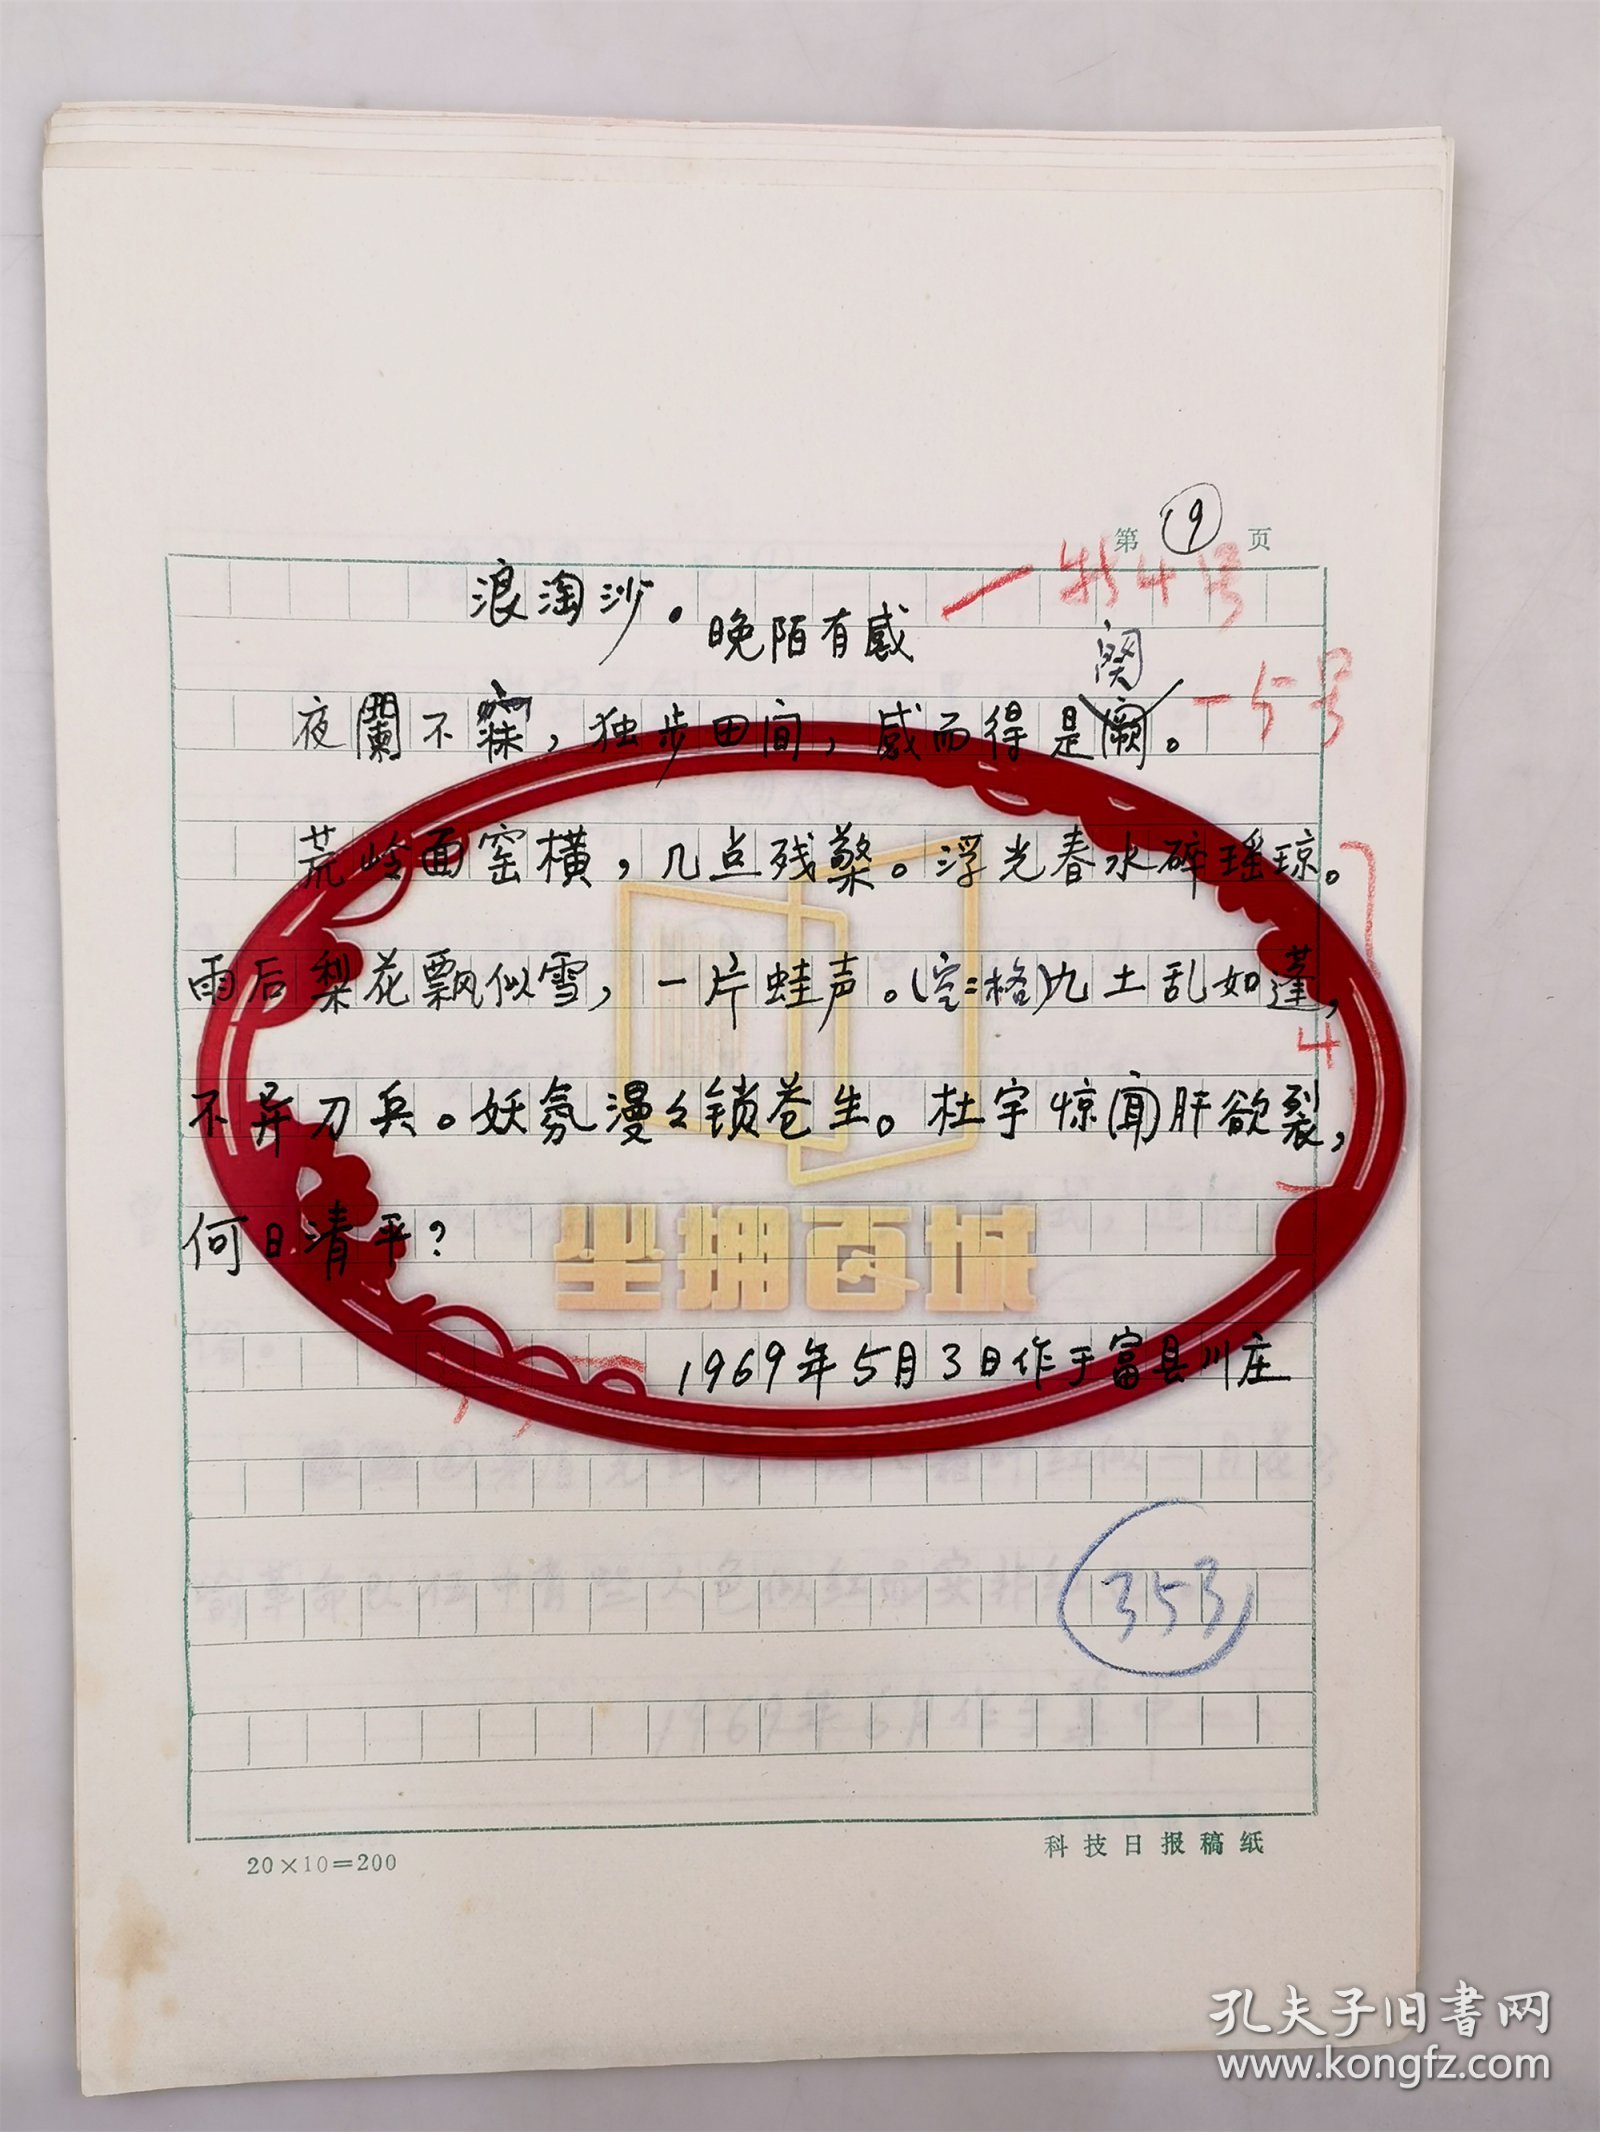 第 9 页
浪淘沙·晚陌有感
一特4号
阕
夜阑不寐，独步田间，感而得是阙。
一5号
荒岭面窑横，几点残檠。浮光春水碎瑶琼。
雨后梨花飘似雪，一片蛙声。(空=格)九土乱如蓬，
4
不异刀兵。妖氛漫々锁苍生。杜宇惊闻肝欲裂，
何日清平？
坐拥百城
1969年5月3日作于富县川庄
353
20×10=200
科技日报稿纸
孔夫子旧书网
www.kongfz.com